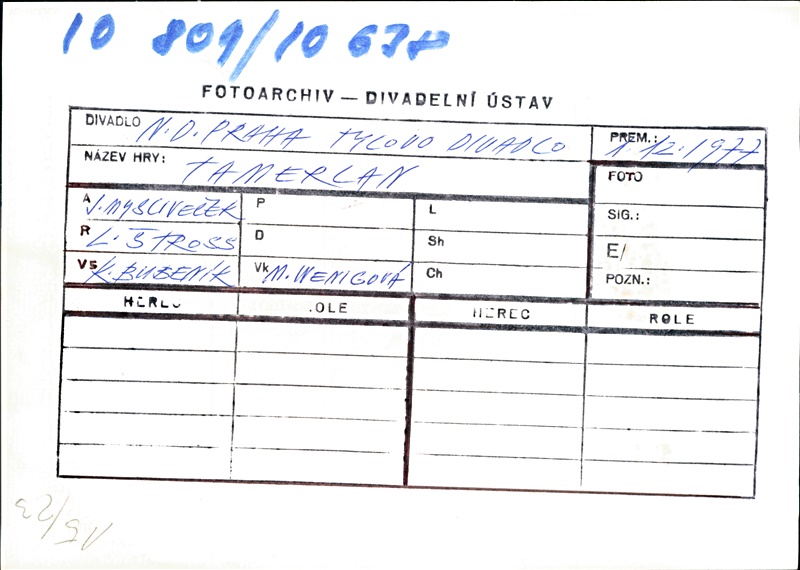 10 809/10 678
FOTOARCHIV — DIVADELNÍ ÚSTAV
DIVADLO N.D. PRAHA TYLOVO DIVADLO
PREM.: 1.12.1977
NÁZEV HRY: TAMERLAN
FOTO
A J. MYSLIVEČEK
P
L
SIG.:
R L. ŠTROSS
D
Sh
E/
Vs K. BUBENÍK
Vk M. WENIGOVÁ
Ch
POZN.:
HEREC
ROLE
HEREC
ROLE